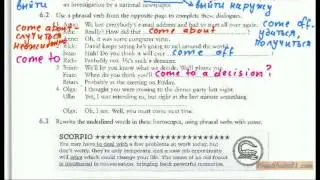 выйти
an investigation by a national newspaper.
выйти наружу
6.2 Use a phrasal verb from the opposite page to complete these dialogues.
We lost everybody's e-mail address and had to start all over again.
come about
Really? How did that come about
come off
случиться
Oh, it was some computer virus.
удаться,
David keeps saying he's going to sail around the world.
получиться
Yeah, but I don't think it'll ever come off
come to
We'll let you know what we decide. We'll phone you.
When do you think you'll come to a decision?
Probably at the meeting on Friday.
I thought you were coming to the dinner party last night.
Oh, I see. Well, you must come next time.
6.3 Rewrite the underlined words in these horoscopes, using phrasal verbs with come.
SCORPIO
You may have to deal with a few problems at work today, but
don't worry, they're only temporary, and a new job opportunity
will arise which could change your life. The name of an old friend
is mentioned in conversation, bringing back powerful memories.